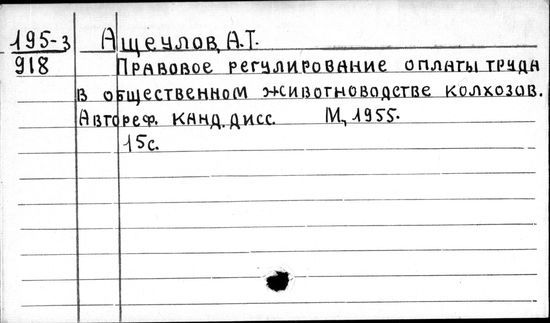 195-3 Ащеулов, А.Т.
918 Правовое регулирование оплаты труда
в общественном животноводстве колхозов.
Автореф. канд. дисс. М., 1955.
15с.